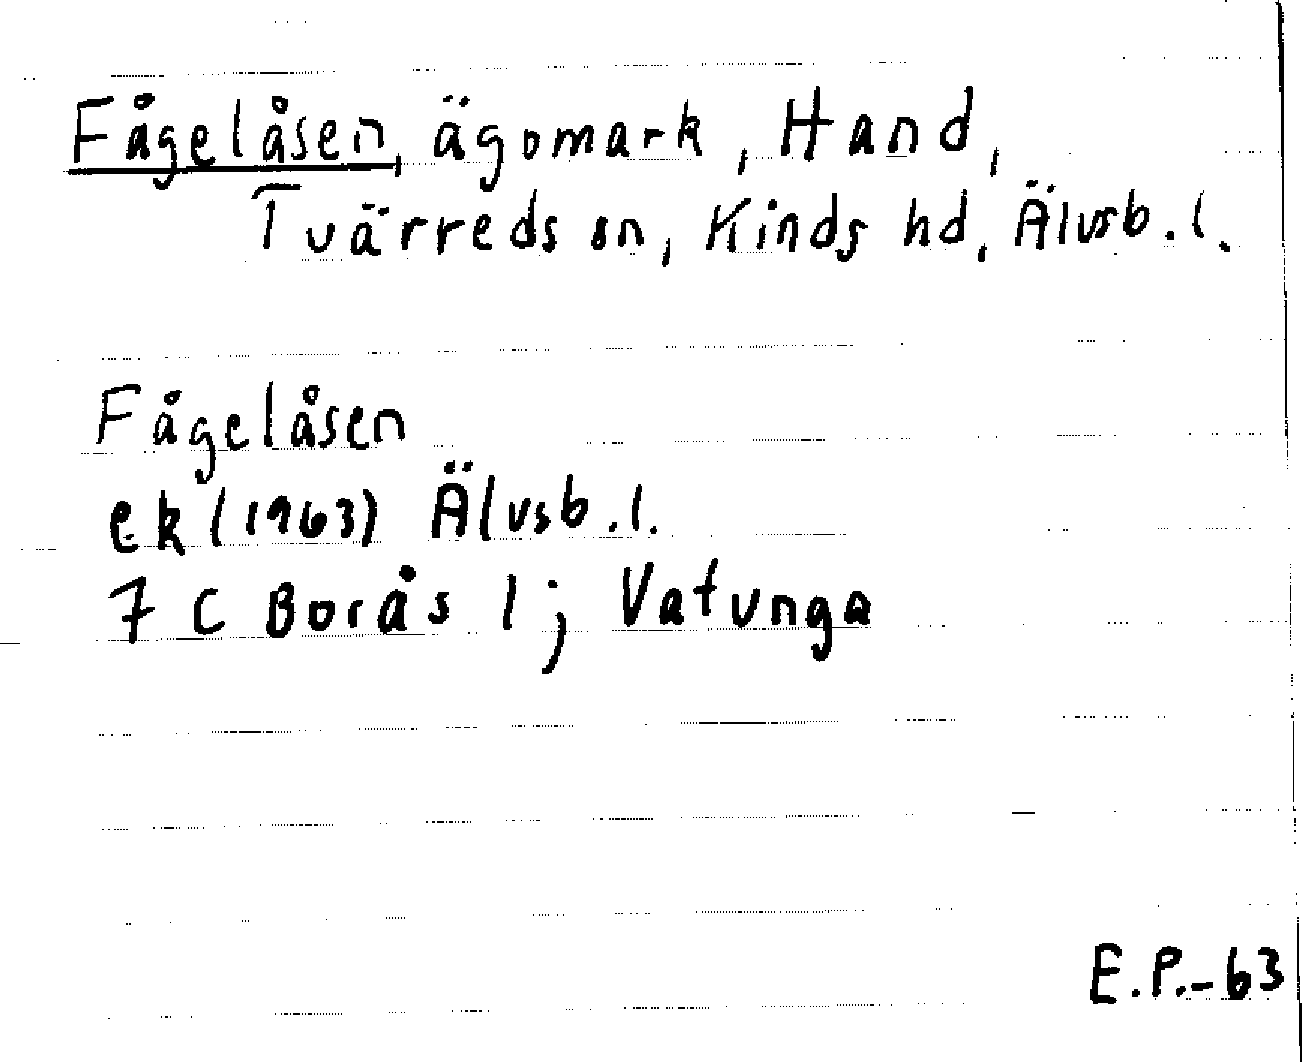 Fågelåsen, ägomark, Hand,
Tvärreds sn, Kinds hd, Älvsb. l.
Fågelåsen
ek (1963) Älvsb. l.
7 C Borås 1; Vatunga
E.P.-63